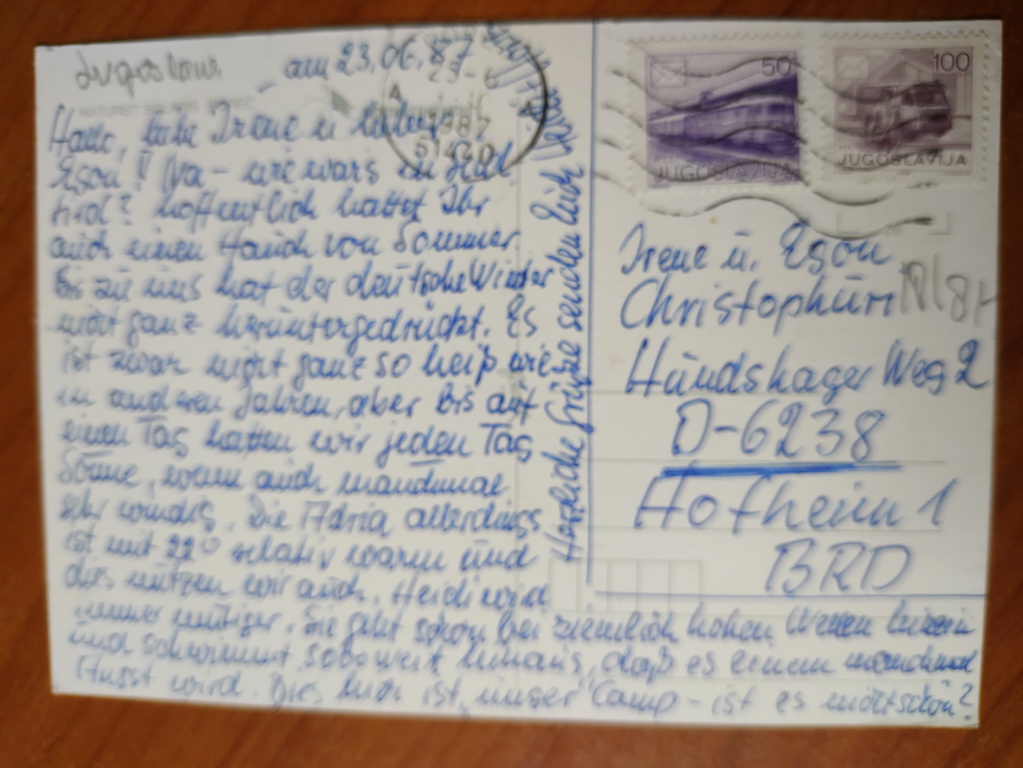 Jugoslawi
am 23.06.87
Hallo, liebe Irene u. lieber
Egon!! Na - wie wars in Süd-
tirol? Hoffentlich hattet Ihr
auch einen Hauch von Sommer.
Bis zu uns hat der deutsche Winter
nicht ganz heruntergedrückt. Es
ist zwar nicht ganz so heiß wie
in anderen Jahren, aber bis auf
einen Tag hatten wir jeden Tag
Sonne, wenn auch manchmal
sehr windig. Die Adria allerdings
ist mit 22° relativ warm und
dies nützen wir auch. Heidi wird
immer mutiger. Sie geht schon bei ziemlich hohen Wellen hinein
und schwimmt so weit hinaus, daß es einem manchmal
wird. Dies hier ist unser Camp - ist es nicht schön?
Herzliche Grüße senden Euch
1987
51420
50
JUGOSLAVIJA
100
JUGOSLAVIJA
Irene u. Egon
Christophori
Hundshager Weg 2
D-6238
Hofheim 1
BRD